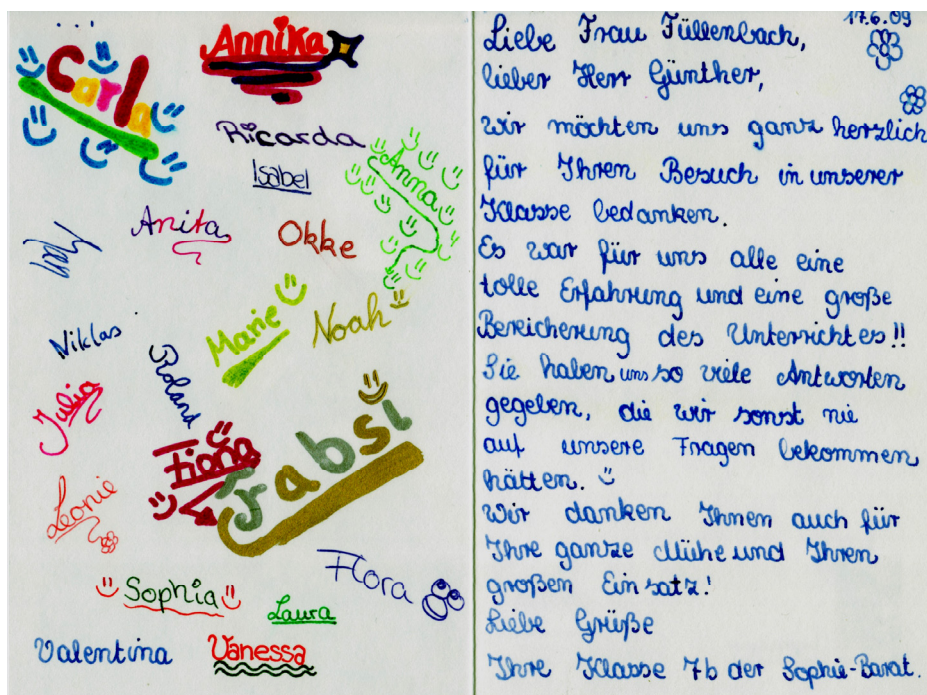 Carla
Annika
Ricarda
Isabel
Anna
Anita
Okke
Marie
Noah
Niklas
Roland
Julia
Fiona
Frabsi
Leonie
Flora
Sophia
Laura
Valentina
Vanessa
17.6.09
Liebe Frau Füllenbach,
lieber Herr Günther,
wir möchten uns ganz herzlich
für Ihren Besuch in unserer
Klasse bedanken.
Es war für uns alle eine
tolle Erfahrung und eine große
Bereicherung des Unterrichtes!!
Sie haben uns so viele Antworten
gegeben, die wir sonst nie
auf unsere Fragen bekommen
hätten.
Wir danken Ihnen auch für
Ihre ganze Mühe und Ihren
großen Einsatz!
Liebe Grüße
Ihre Klasse 7b der Sophie-Barat.